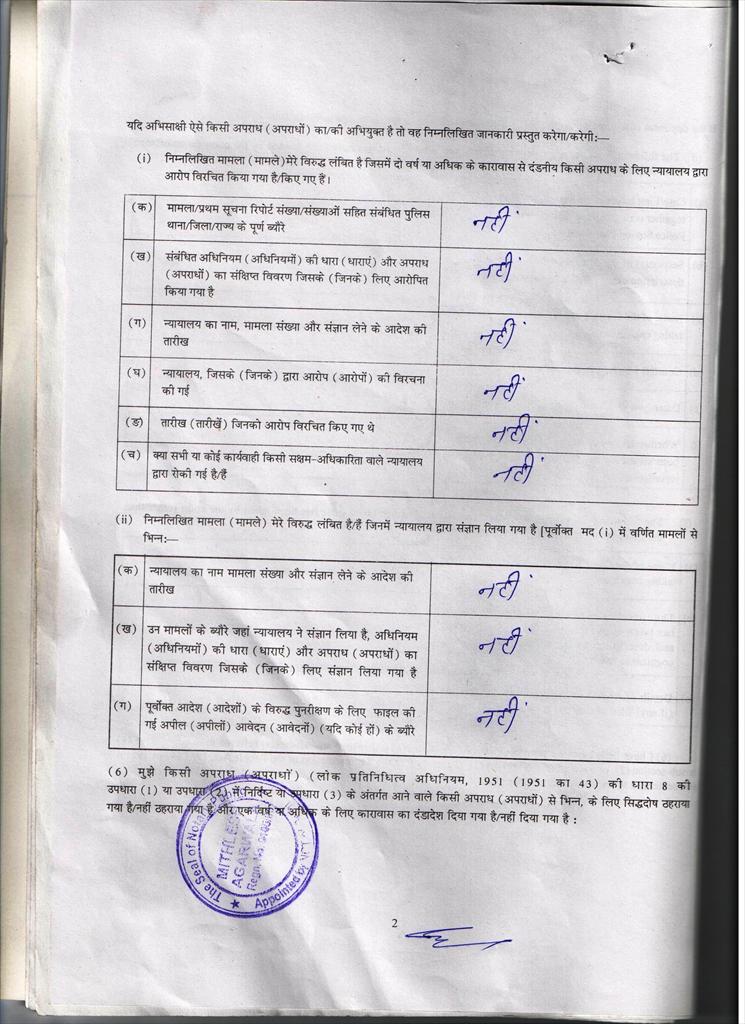 यदि अभिसाक्षी ऐसे किसी अपराध (अपराधों) का/की अभियुक्त है तो वह निम्नलिखित जानकारी प्रस्तुत करेगा/करेगी:—
(i) निम्नलिखित मामला (मामले)मेरे विरुद्ध लंबित है जिसमें दो वर्ष या अधिक के कारावास से दंडनीय किसी अपराध के लिए न्यायालय द्वारा
आरोप विरचित किया गया है/किए गए हैं।
(क) मामला/प्रथम सूचना रिपोर्ट संख्या/संख्याओं सहित संबंधित पुलिस नहीं
थाना/जिला/राज्य के पूर्ण ब्यौरे
(ख) संबंधित अधिनियम (अधिनियमों) की धारा (धाराएं) और अपराध नहीं
(अपराधों) का संक्षिप्त विवरण जिसके (जिनके) लिए आरोपित
किया गया है
(ग) न्यायालय का नाम, मामला संख्या और संज्ञान लेने के आदेश की नहीं
तारीख
(घ) न्यायालय, जिसके (जिनके) द्वारा आरोप (आरोपों) की विरचना नहीं
की गई
(ङ) तारीख (तारीखें) जिनको आरोप विरचित किए गए थे नहीं
(च) क्या सभी या कोई कार्यवाही किसी सक्षम-अधिकारिता वाले न्यायालय नहीं
द्वारा रोकी गई है/हैं
(ii) निम्नलिखित मामला (मामले) मेरे विरुद्ध लंबित है/हैं जिनमें न्यायालय द्वारा संज्ञान लिया गया है [पूर्वोक्त मद (i) में वर्णित मामलों से
भिन्न:—
(क) न्यायालय का नाम मामला संख्या और संज्ञान लेने के आदेश की नहीं
तारीख
(ख) उन मामलों के ब्यौरे जहां न्यायालय ने संज्ञान लिया है, अधिनियम नहीं
(अधिनियमों) की धारा (धाराएं) और अपराध (अपराधों) का
संक्षिप्त विवरण जिसके (जिनके) लिए संज्ञान लिया गया है
(ग) पूर्वोक्त आदेश (आदेशों) के विरुद्ध पुनरीक्षण के लिए फाइल की नहीं
गई अपील (अपीलों) आवेदन (आवेदनों) (यदि कोई हों) के ब्यौरे
(6) मुझे किसी अपराध (अपराधों) (लोक प्रतिनिधित्व अधिनियम, 1951 (1951 का 43) की धारा 8 की
उपधारा (1) या उपधारा (2) में निर्दिष्ट या उपधारा (3) के अंतर्गत आने वाले किसी अपराध (अपराधों) से भिन्न, के लिए सिद्धदोष ठहराया
गया है/नहीं ठहराया गया है और एक वर्ष या अधिक के लिए कारावास का दंडादेश दिया गया है/नहीं दिया गया है :
The Seal of Notary
AGARWAL
Regn. No.
Appointed by
2